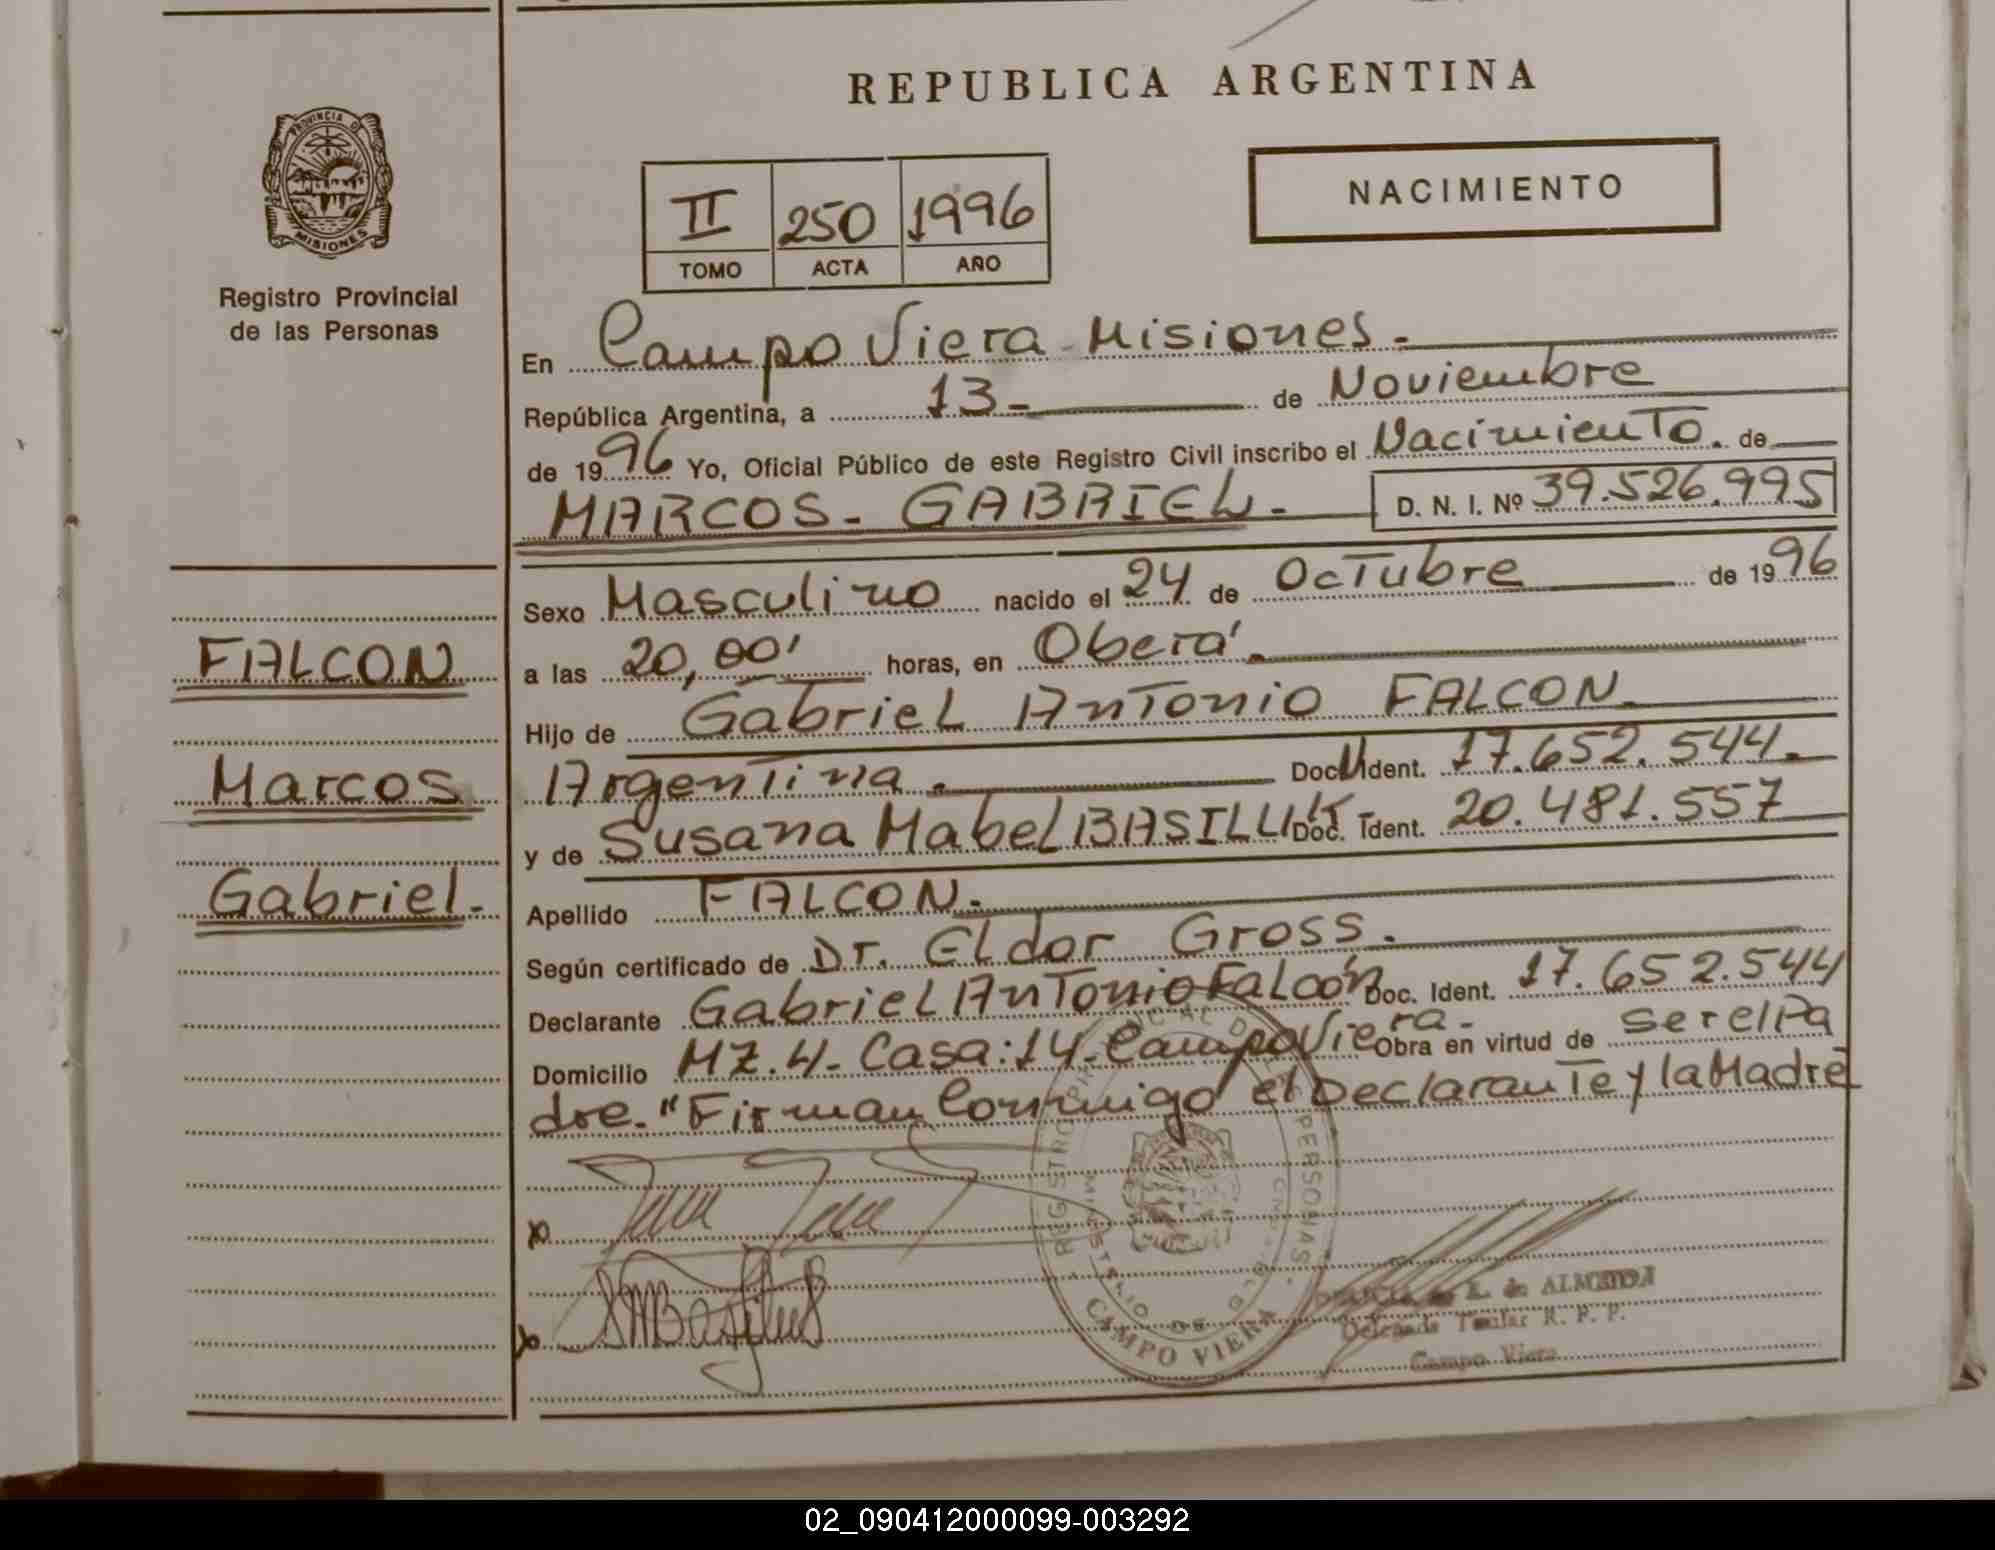 REPUBLICA ARGENTINA
PROVINCIA DE
MISIONES
Registro Provincial
de las Personas
NACIMIENTO
II 250 1996
TOMO ACTA AÑO
En Campo Viera - Misiones.-
República Argentina, a 13- de Noviembre
de 1996 Yo, Oficial Público de este Registro Civil inscribo el Nacimiento. de
MARCOS - GABRIEL - D. N. I. Nº 39.526.995
Sexo Masculino nacido el 24 de Octubre de 1996
a las 20,00' horas, en Oberá.
Hijo de Gabriel Antonio FALCON.
Argentina. Doc. Ident. 17.652.544.-
y de Susana Mabel BASILUK Doc. Ident. 20.481.557
Apellido FALCON.-
Según certificado de Dr. Eldor Gross.
Declarante Gabriel Antonio Falcón Doc. Ident. 17.652.544
Domicilio MZ.4- Casa:14- Campo Viera- Obra en virtud de ser el Pa
dre. "Firman Conmigo el Declarante y la Madre
FALCON
Marcos
Gabriel.-
REGISTRO PROVINCIAL DE LAS PERSONAS
MINISTERIO DE
CAMPO VIERA
de ALMEIDA
Delegada Titular R. P. P.
Campo Viera
02_090412000099-003292